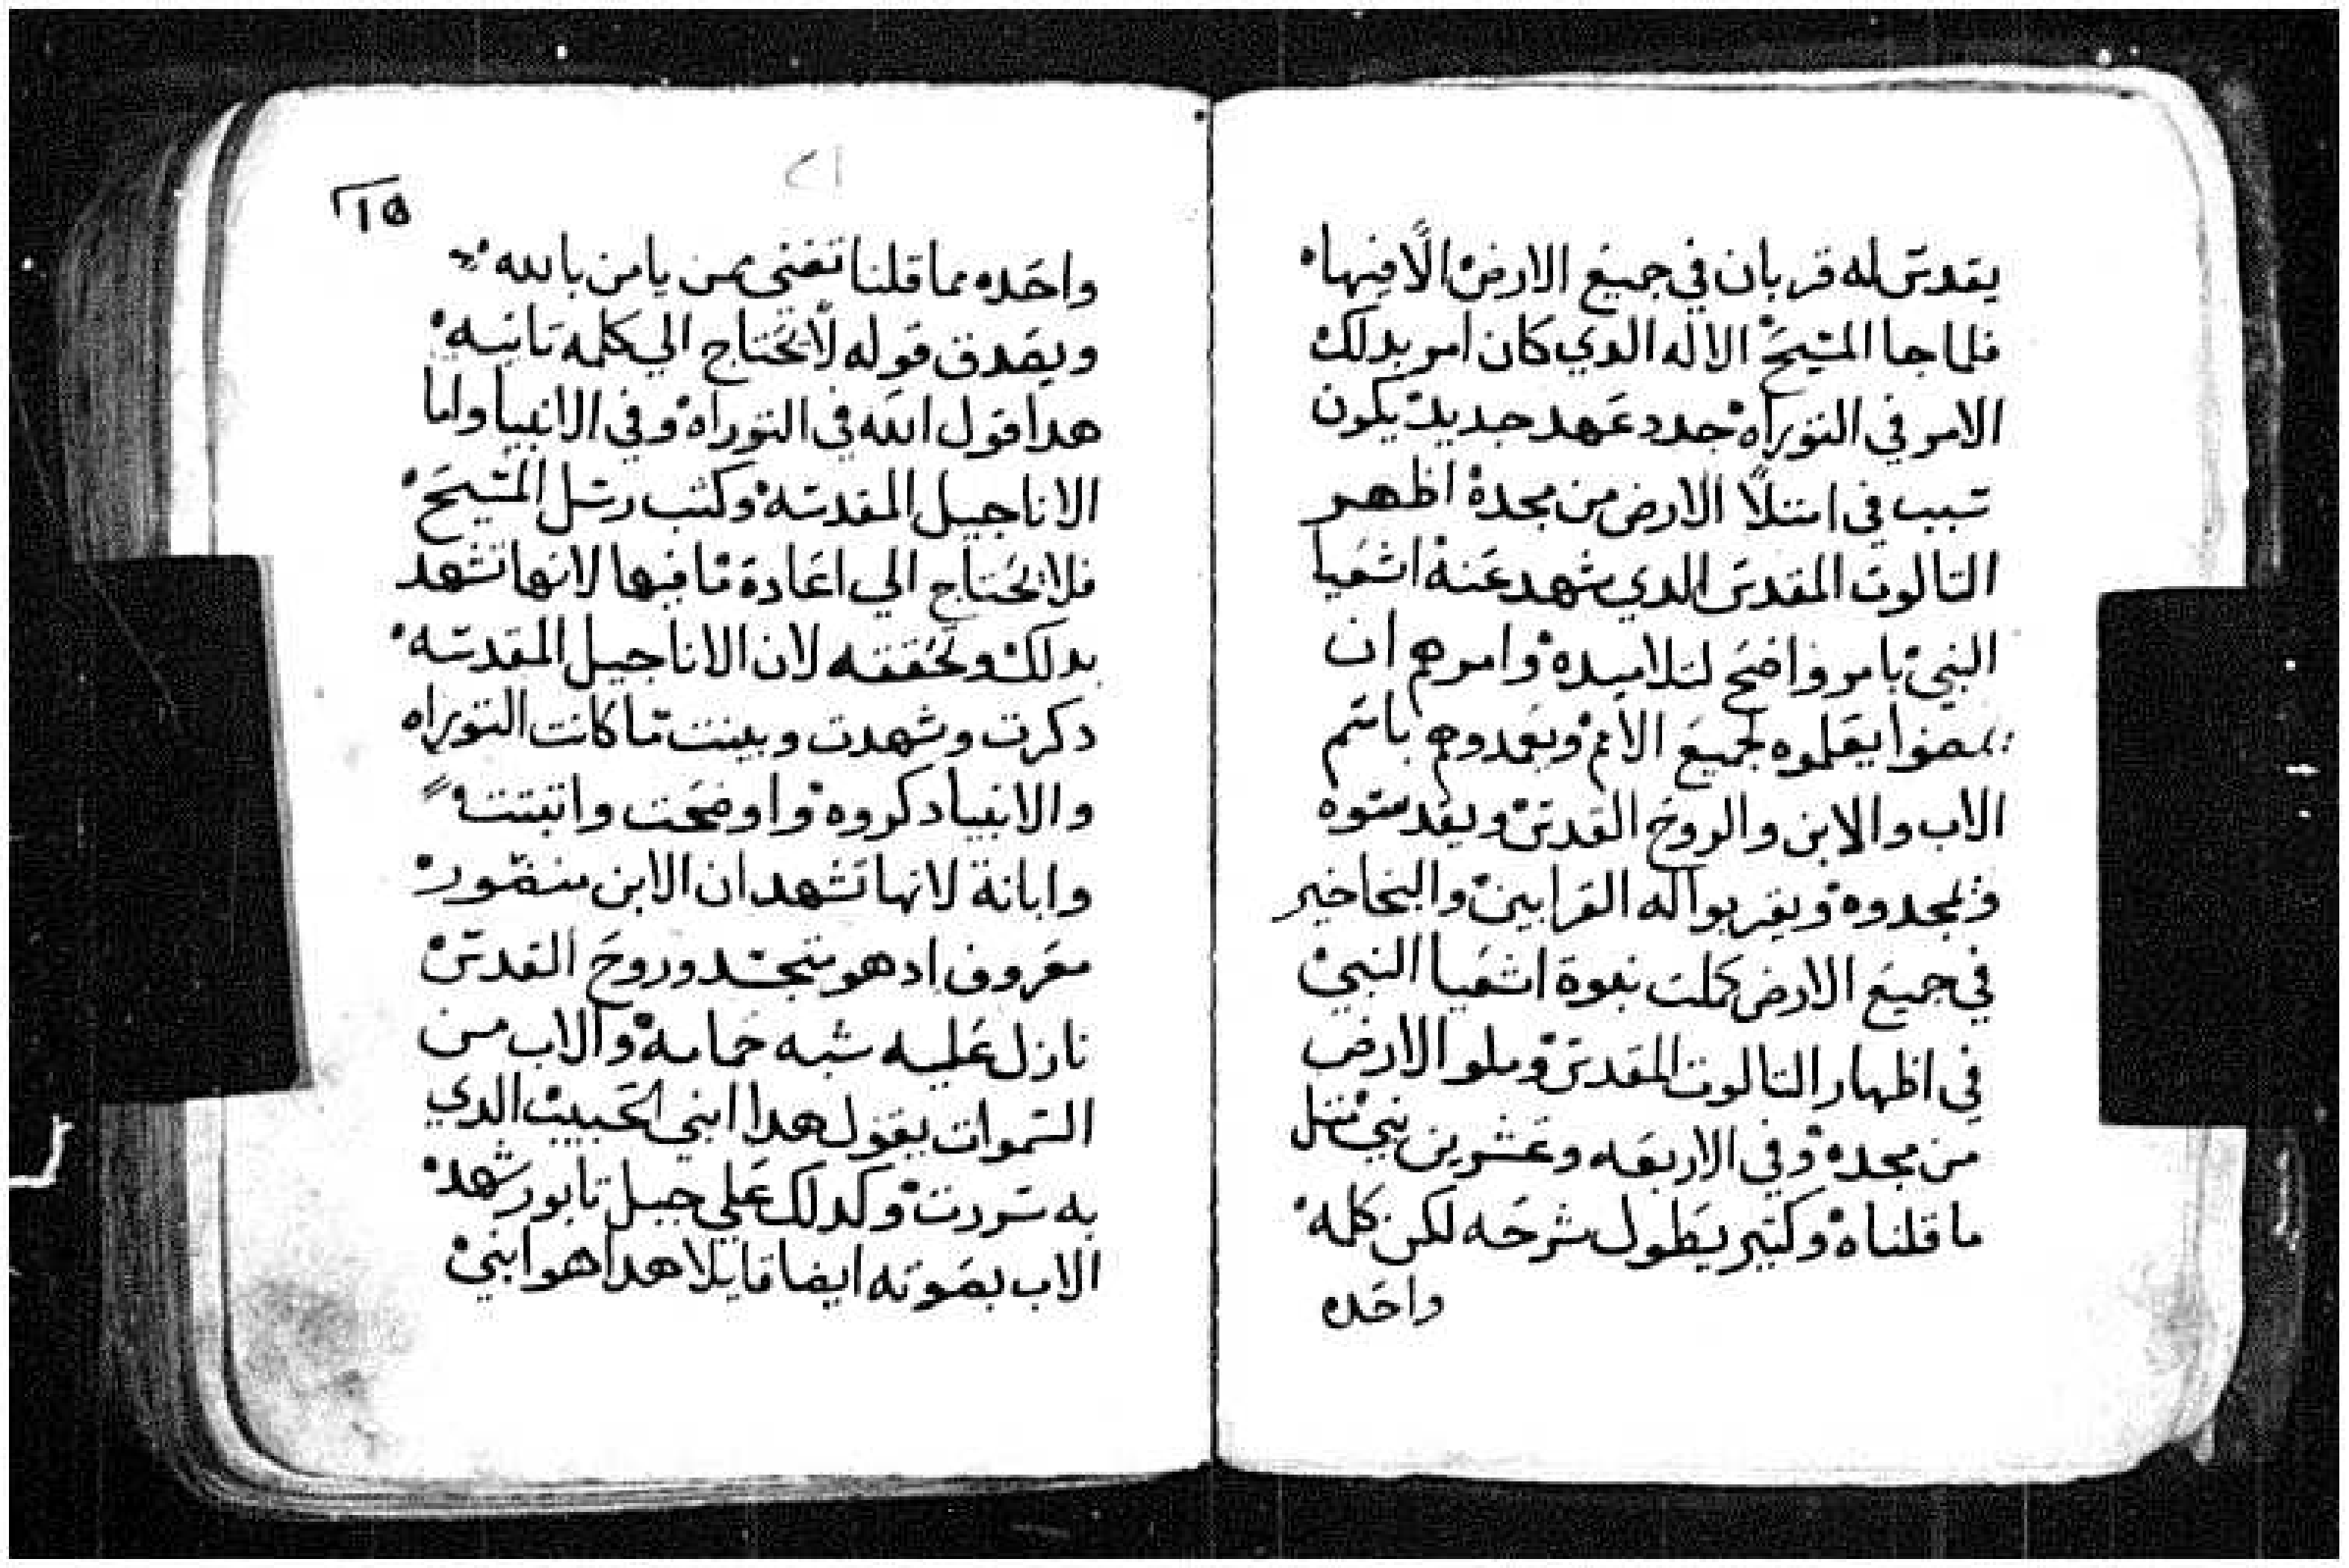 يقدس له قربان في جميع الارض الا فيها
فلما جا المسيح الاله الدي كان امر بدلك
الامر في التوراه جدد عهد جديد يكون
سبب في امتلا الارض من مجدة اظهر
التالوت المقدس الدي شهد عنه اشعيا
النبي بامر واضح لتلاميده وامرهم ان
يمضوا يعلموه لجميع الامم ويعمدوهم باسم
الاب والابن والروح القدس ويقدسوه
ويمجدوه ويقربوا له القرابين والبخاخير
في جميع الارض كملت نبوة اشعيا النبي
في اظهار التالوت المقدس وملو الارض
من مجده وفي الاربعه وعشرين نبي متل
ما قلناه وكتير يطول شرحه لكن كلمه
واحده
١٥
واحده مما قلنا تغني ممن يامن بالله
ويصدق قوله لا يحتاج الي كلمه تانيه
هدا قول الله في التوراه وفي الانبيا واما
الاناجيل المقدسه وكتب رسل المسيح
فلا نحتاج الي اعادة ما فيها لانها تشهد
بدلك وتحققه لان الاناجيل المقدسه
دكرت وشهدت وبينت ما كانت التوراه
والانبيا دكروه واوضحت واتبتت
وابانة لانها تشهد ان الابن منضور
معروف اد هو متجسد وروح القدس
نازل عليه شبه حمامه والاب من
السموات يقول هدا ابني الحبيب الدي
به سررت وكدلك علي جبل تابور شهد
الاب بصوته ايضا قايلا هدا هو ابني